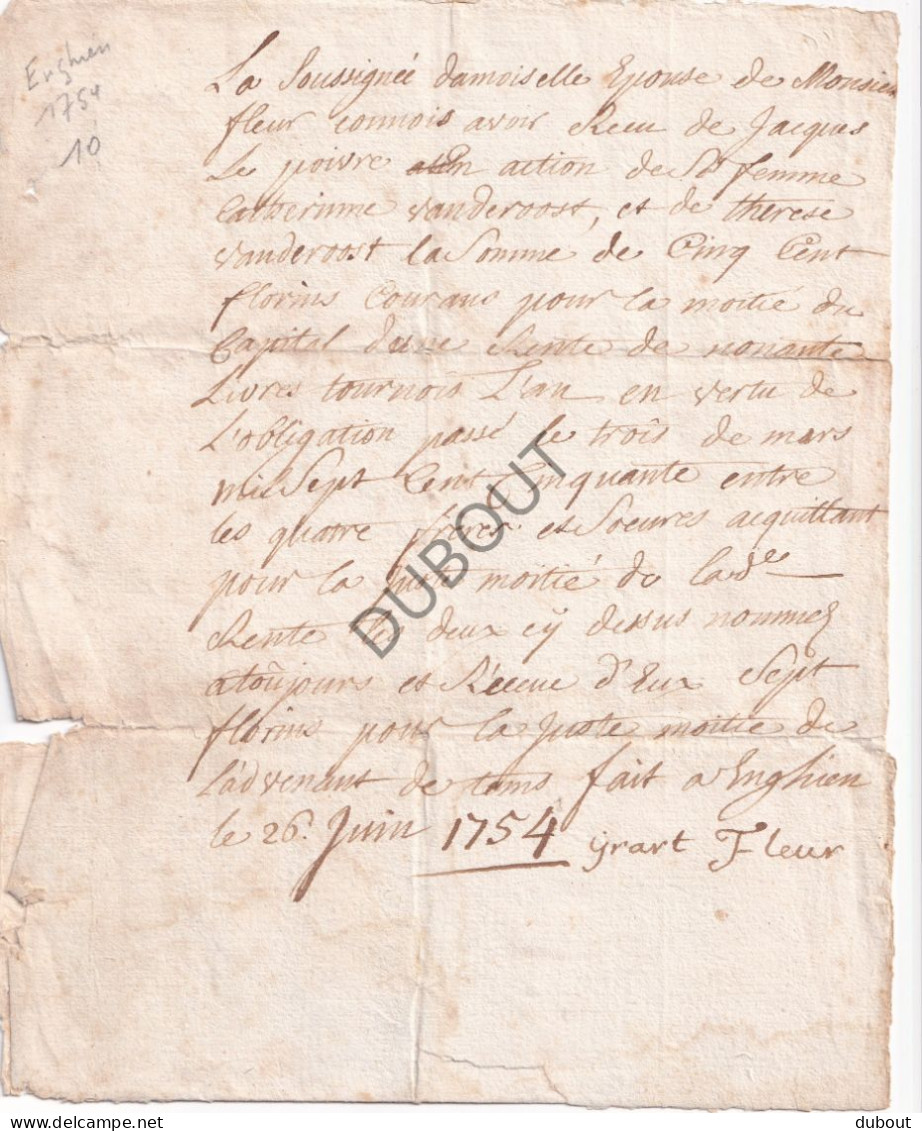 Enghien
1754
10
La Soussignée damoiselle Epouse de Monsieu
fleur connois avoir Recu de Jacques
Le poivre en action de Sa femme
Catherinne Vanderoost, et de therese
vanderoost la Somme de Cinq Cent
florins Courans pour la moitié du
Capital dune Rente de nonante
Livres tournois L'an en vertu de
L'obligation passé le trois de mars
mil Sept Cent Cinquante entre
les quatre frères et Soeures acquittant
pour la juste moitié de lad.e
Rente les deux cÿ dessus nommez
atoûjours et Réceue d'Eux Sept
florins pour la juste moitié de
L'advenant de tams fait a Enghien
le 26. Juin 1754 grart Fleur
DUBOUT
www.delcampe.net
dubout